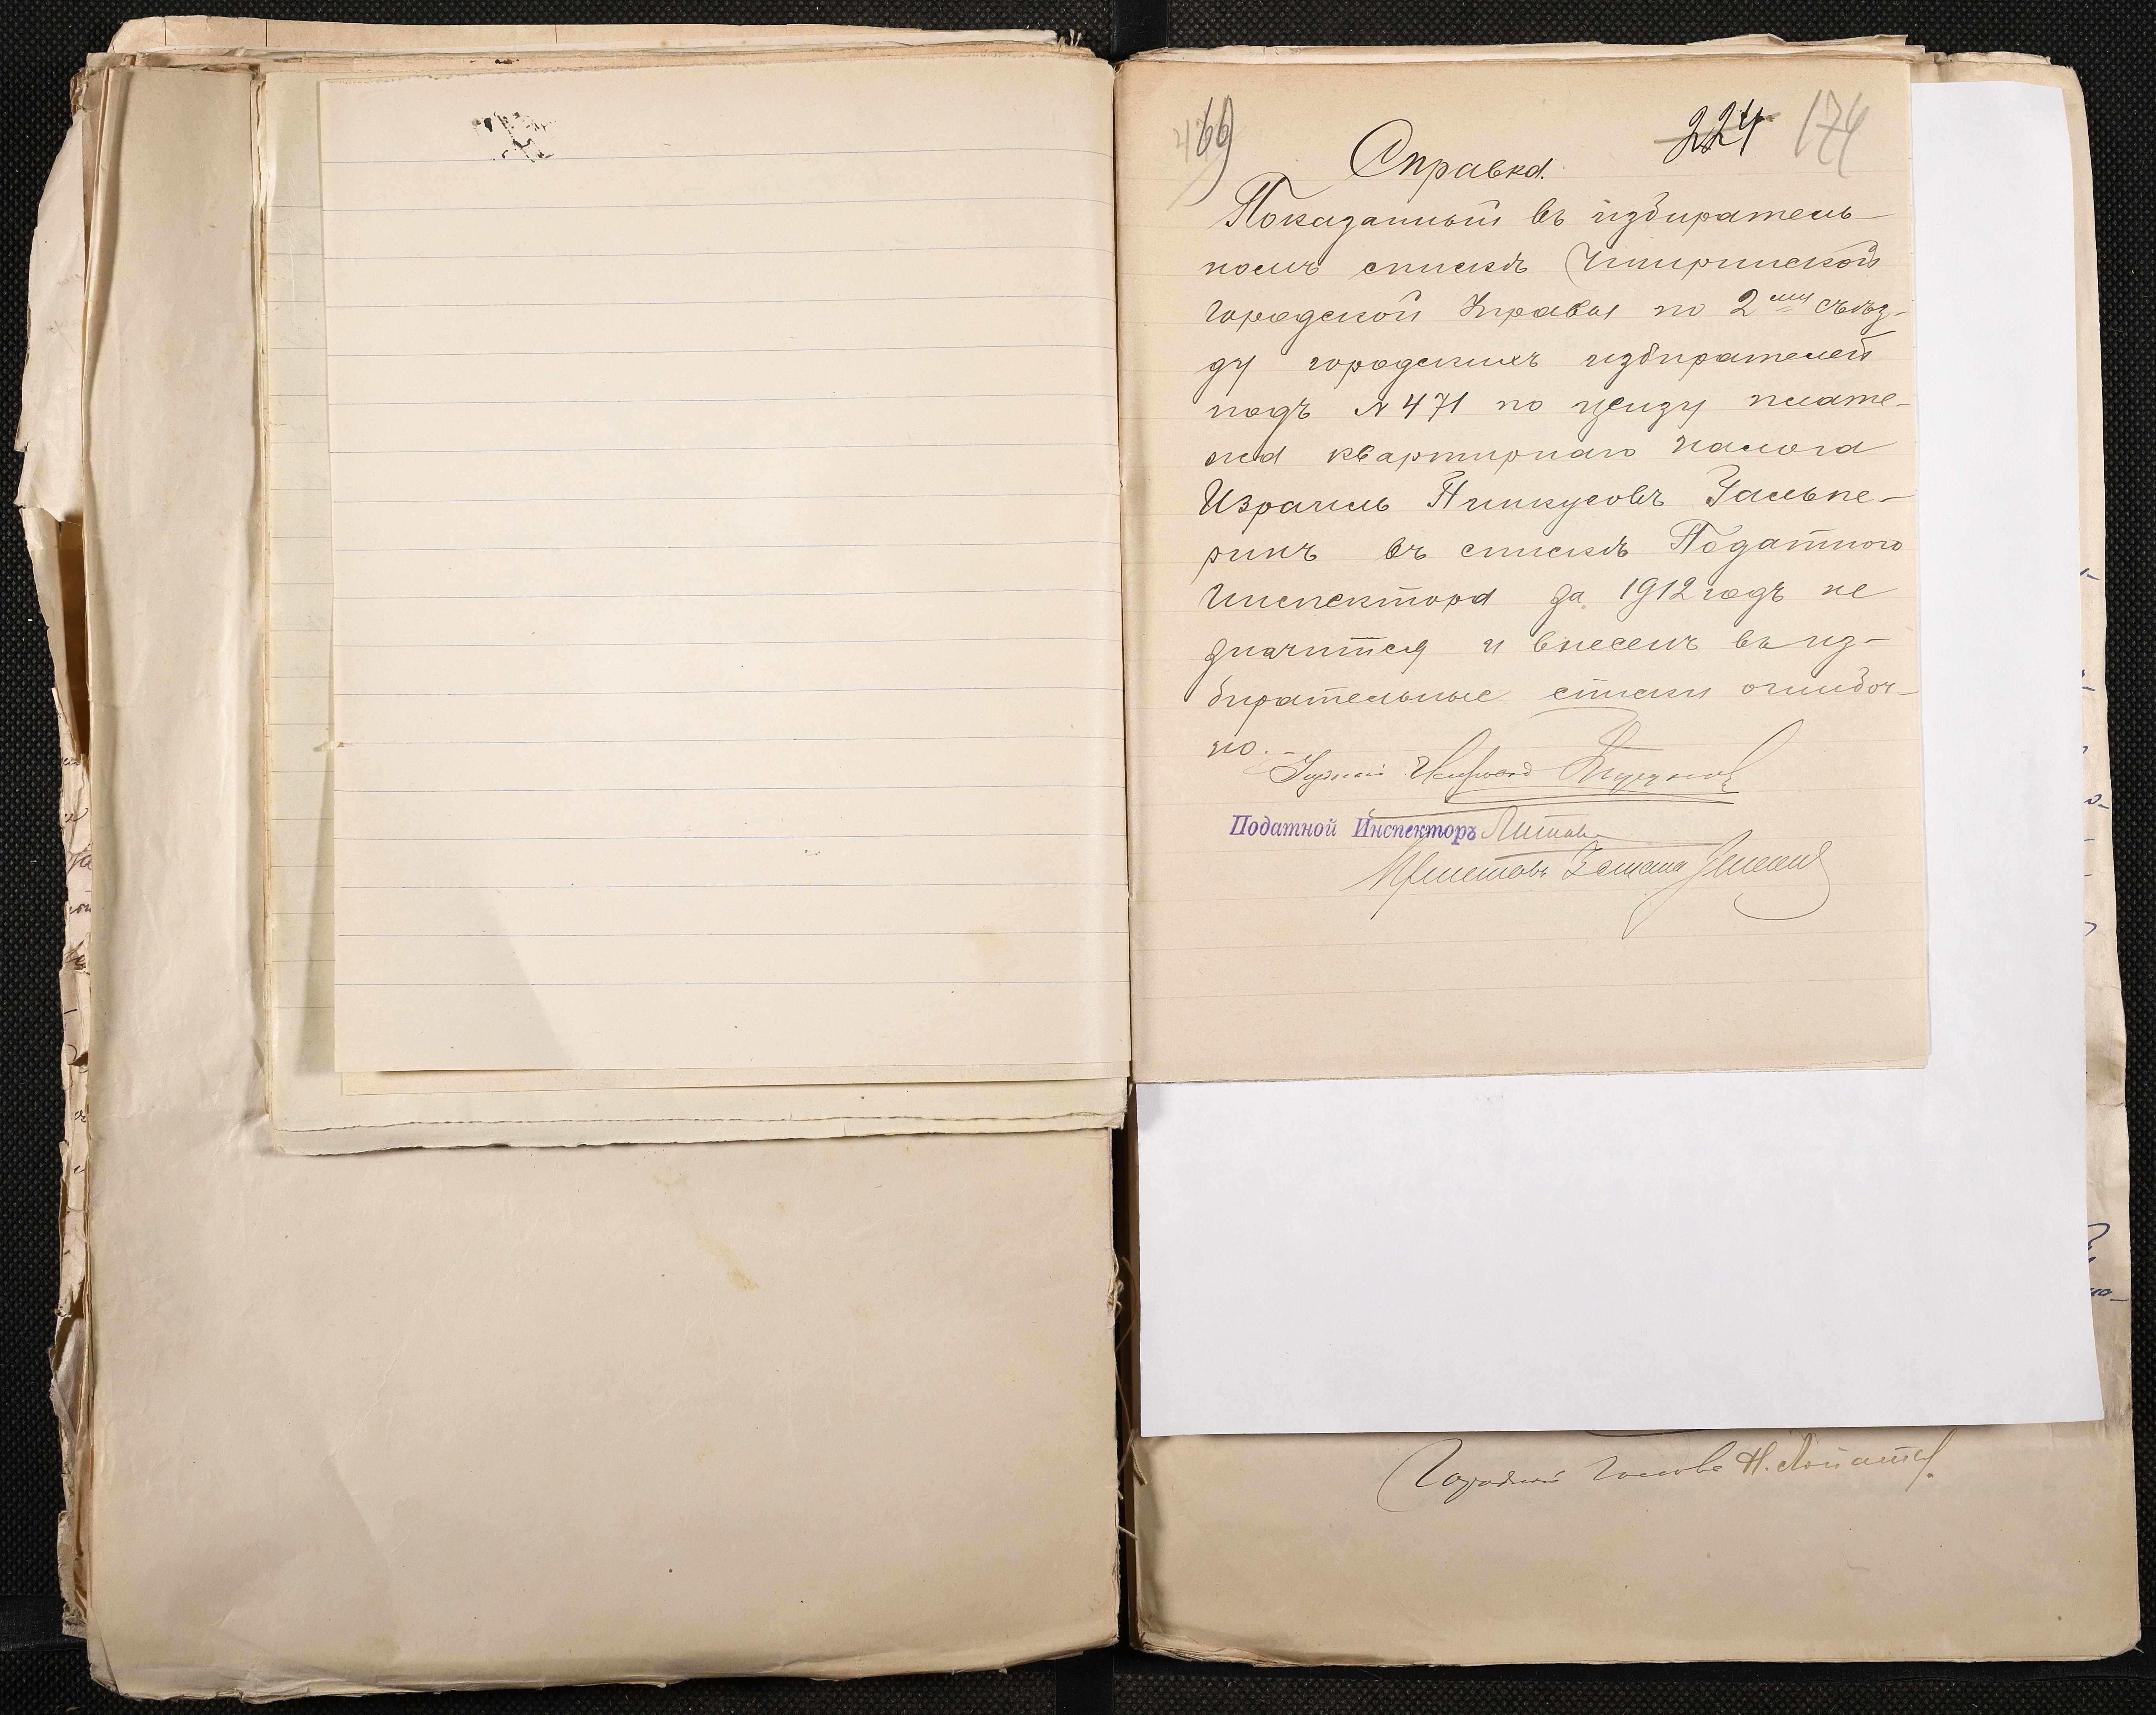 469
224 174
Справка.
Показанный въ избиратель-
номъ спискѣ Чигиринской
Городской Управы по 2му съѣз-
ду городскихъ избирателей
подъ № 471 по цензу плате-
жа квартирнаго налога
Израиль Пинкусовъ Гальпе-
ринъ въ спискѣ Податного
Инспектора за 1912 годъ не
значится и внесенъ въ из-
бирательные списки ошибоч-
но.
Податной Инспекторъ
Приставъ
Городской Голова Н.